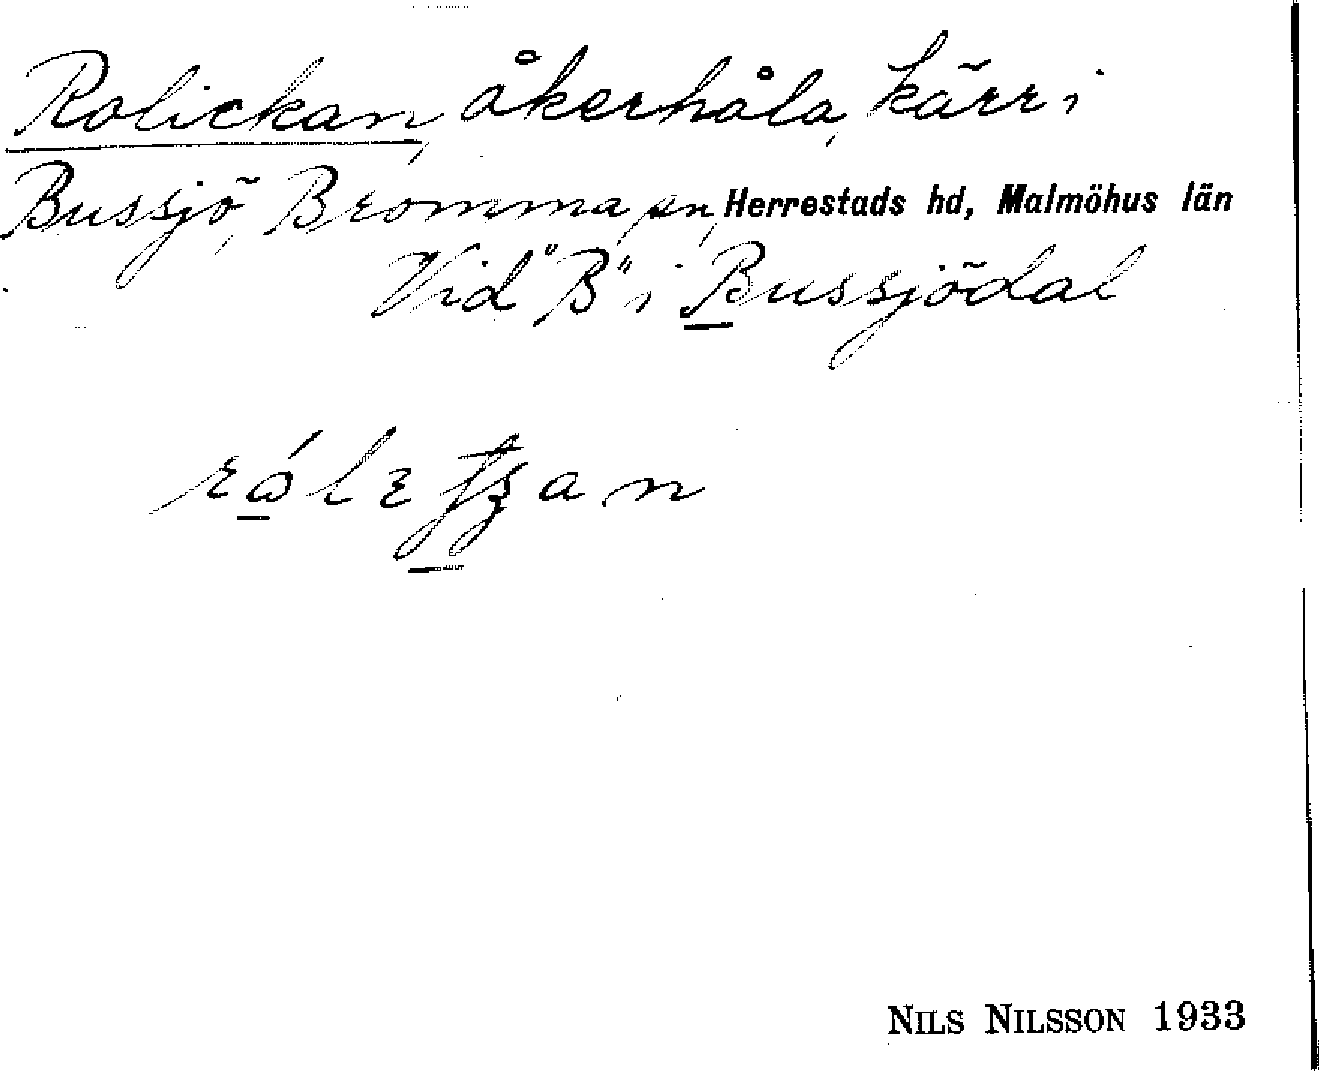 Rolickan, åkerhåla, kärr i
Bussjö, Bromma sn, Herrestads hd, Malmöhus län
Vid "B" i Bussjödal
NILS NILSSON 1933